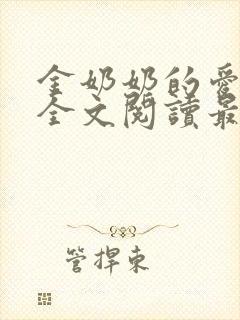 金奶奶的愛
全文閱讀最
管捍東